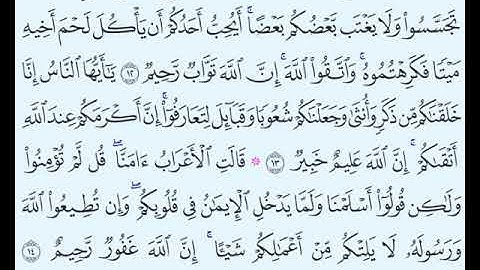 تَجَسَّسُوا۟ وَلَا يَغْتَب بَّعْضُكُم بَعْضًا ۚ أَيُحِبُّ أَحَدُكُمْ أَن يَأْكُلَ لَحْمَ أَخِيهِ
مَيْتًا فَكَرِهْتُمُوهُ ۚ وَٱتَّقُوا۟ ٱللَّهَ ۚ إِنَّ ٱللَّهَ تَوَّابٌ رَّحِيمٌ ١٢ يَـٰٓأَيُّهَا ٱلنَّاسُ إِنَّا
خَلَقْنَـٰكُم مِّن ذَكَرٍ وَأُنثَىٰ وَجَعَلْنَـٰكُمْ شُعُوبًا وَقَبَآئِلَ لِتَعَارَفُوٓا۟ ۚ إِنَّ أَكْرَمَكُمْ عِندَ ٱللَّهِ
أَتْقَىٰكُمْ ۚ إِنَّ ٱللَّهَ عَلِيمٌ خَبِيرٌ ١٣ ۞ قَالَتِ ٱلْأَعْرَابُ ءَامَنَّا ۖ قُل لَّمْ تُؤْمِنُوا۟
وَلَـٰكِن قُولُوٓا۟ أَسْلَمْنَا وَلَمَّا يَدْخُلِ ٱلْإِيمَـٰنُ فِى قُلُوبِكُمْ ۖ وَإِن تُطِيعُوا۟ ٱللَّهَ
وَرَسُولَهُۥ لَا يَلِتْكُم مِّنْ أَعْمَـٰلِكُمْ شَيْـًٔا ۚ إِنَّ ٱللَّهَ غَفُورٌ رَّحِيمٌ ١٤